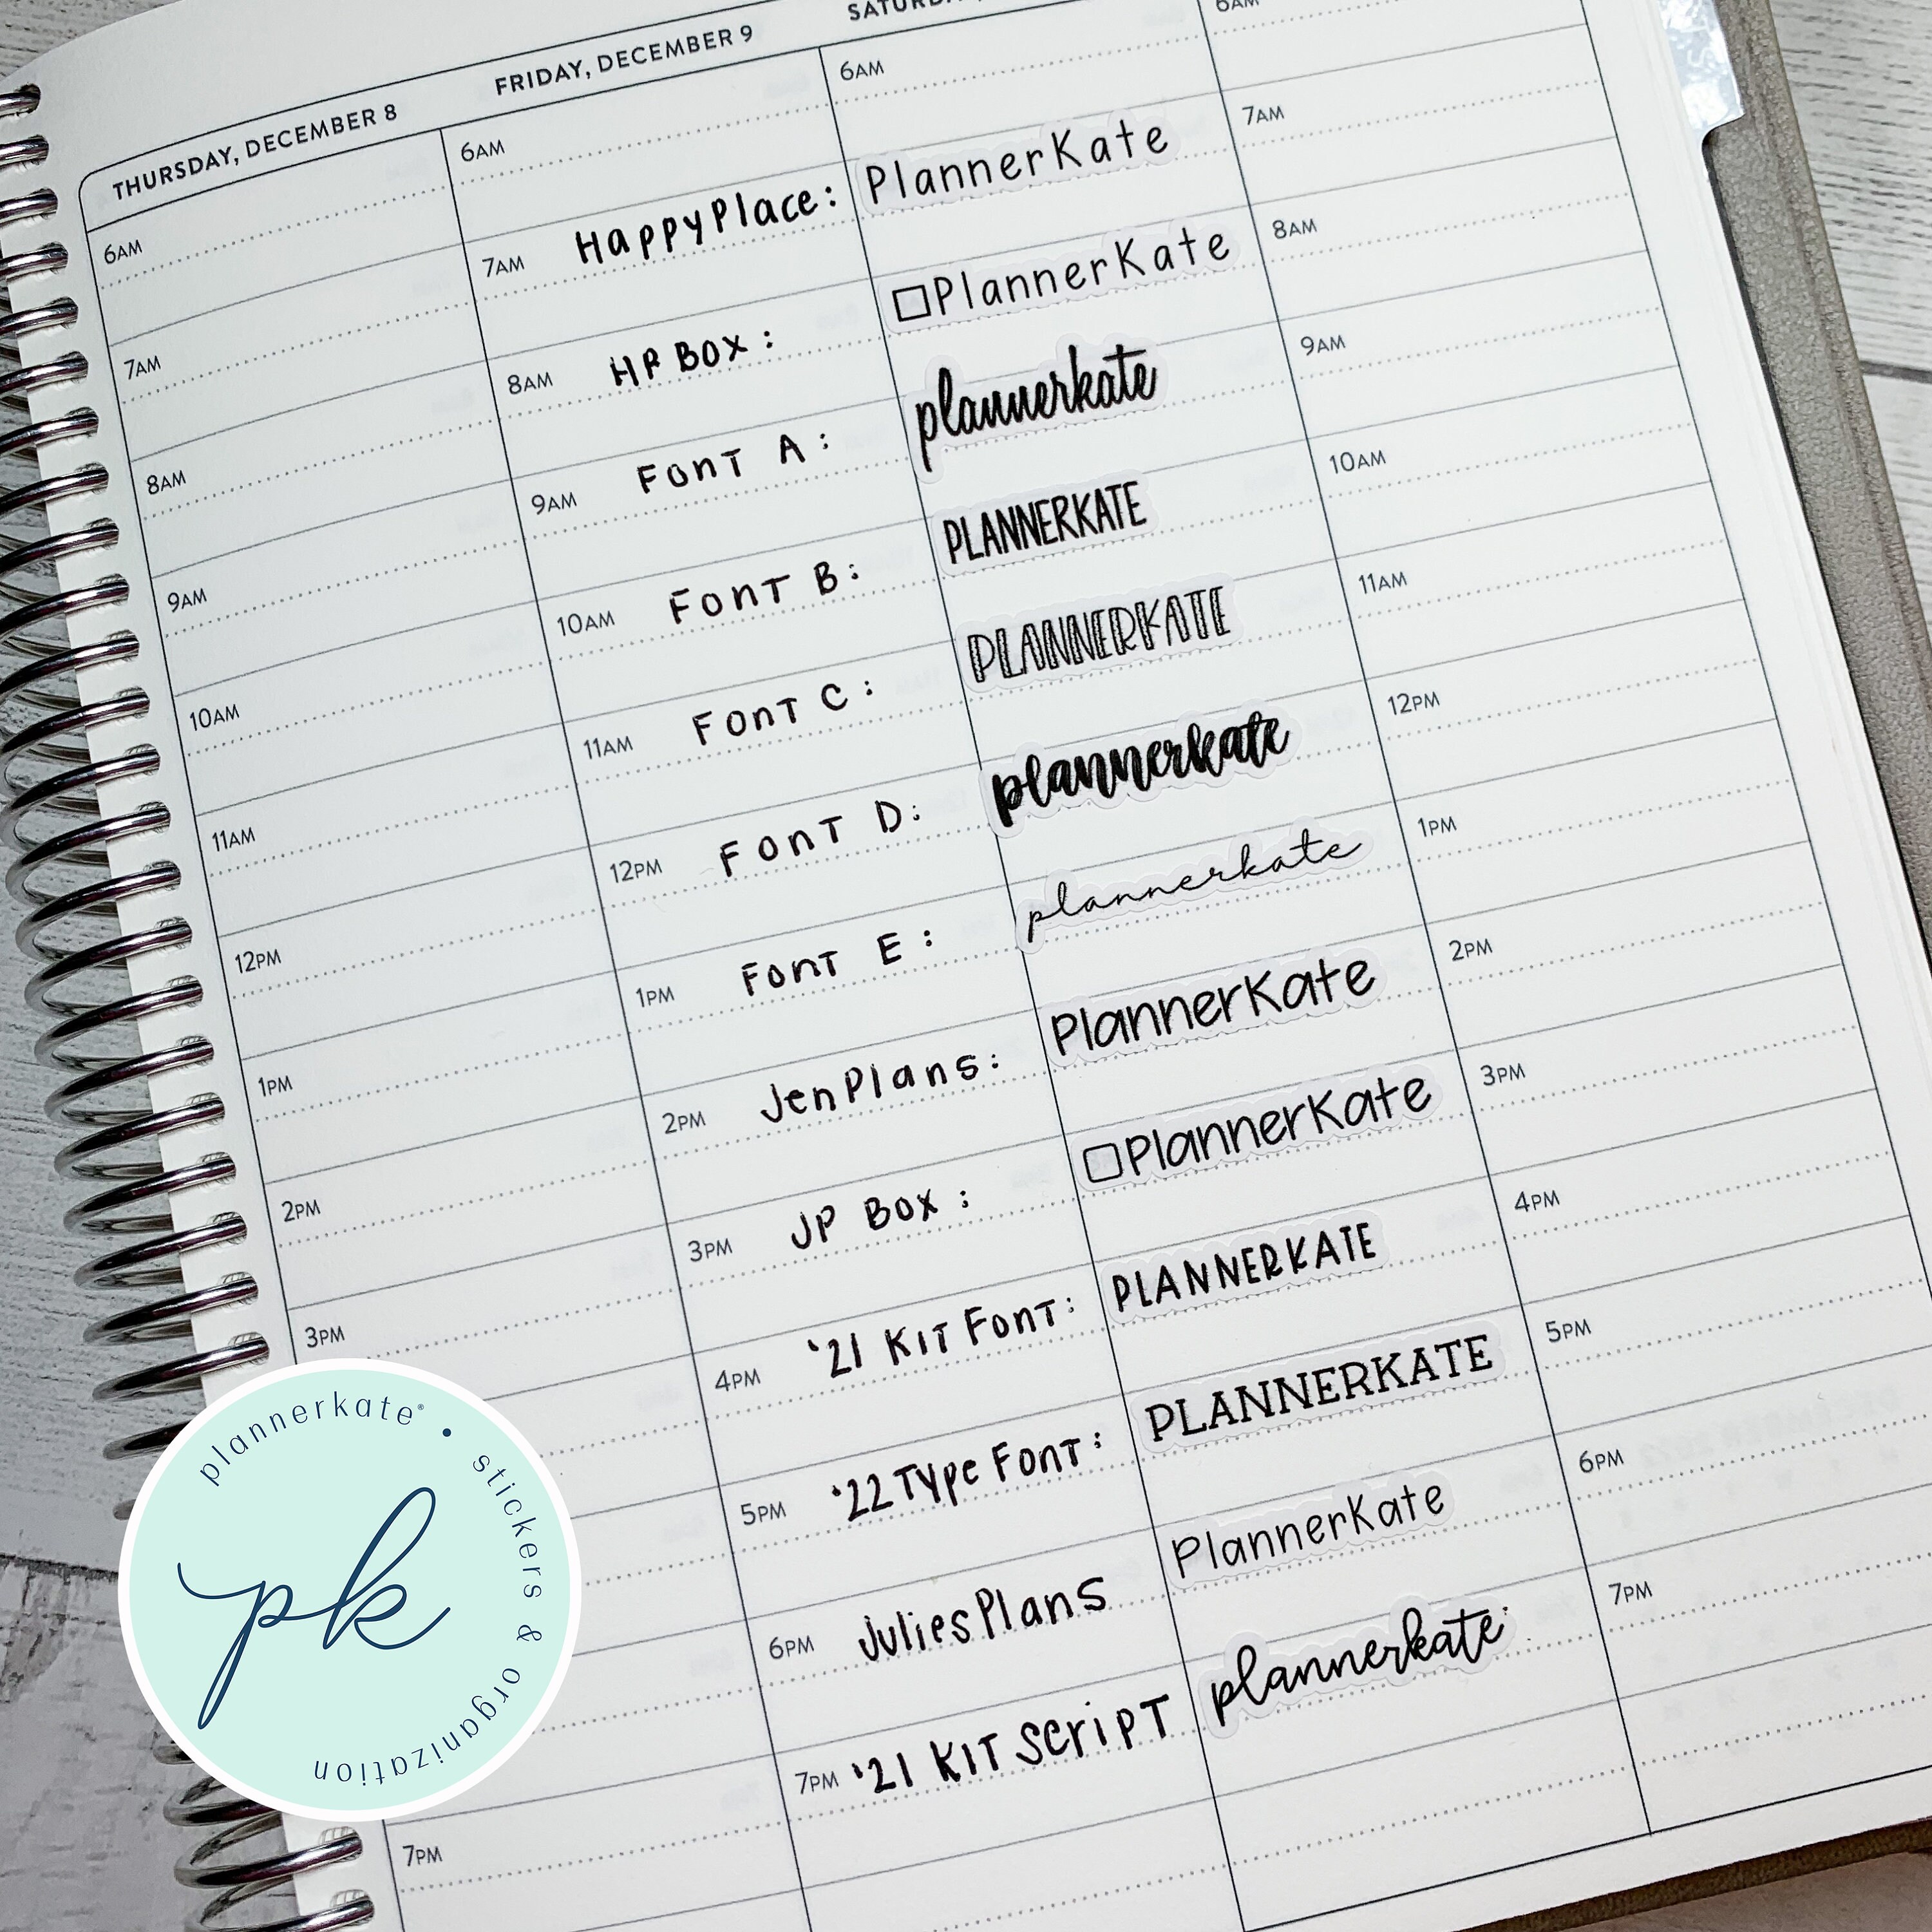 THURSDAY, DECEMBER 8
FRIDAY, DECEMBER 9
6AM
7AM
8AM
9AM
10AM
11AM
12PM
1PM
2PM
3PM
7PM
6AM
7AM
8AM
9AM
10AM
11AM
12PM
1PM
2PM
3PM
4PM
5PM
6PM
7PM
HappyPlace: PlannerKate
HP BOX: PlannerKate
Font A: plannerkate
Font B: PLANNERKATE
Font C: PLANNERKATE
Font D: plannerkate
Font E: plannerkate
JenPlans: PlannerKate
JP Box: PlannerKate
'21 KIT Font: PLANNERKATE
'22 Type Font: PLANNERKATE
JuliesPlans PlannerKate
'21 KIT Script plannerkate
6AM
6AM
7AM
8AM
9AM
10AM
11AM
12PM
1PM
2PM
3PM
4PM
5PM
6PM
7PM
plannerkate® • stickers & organization
pk